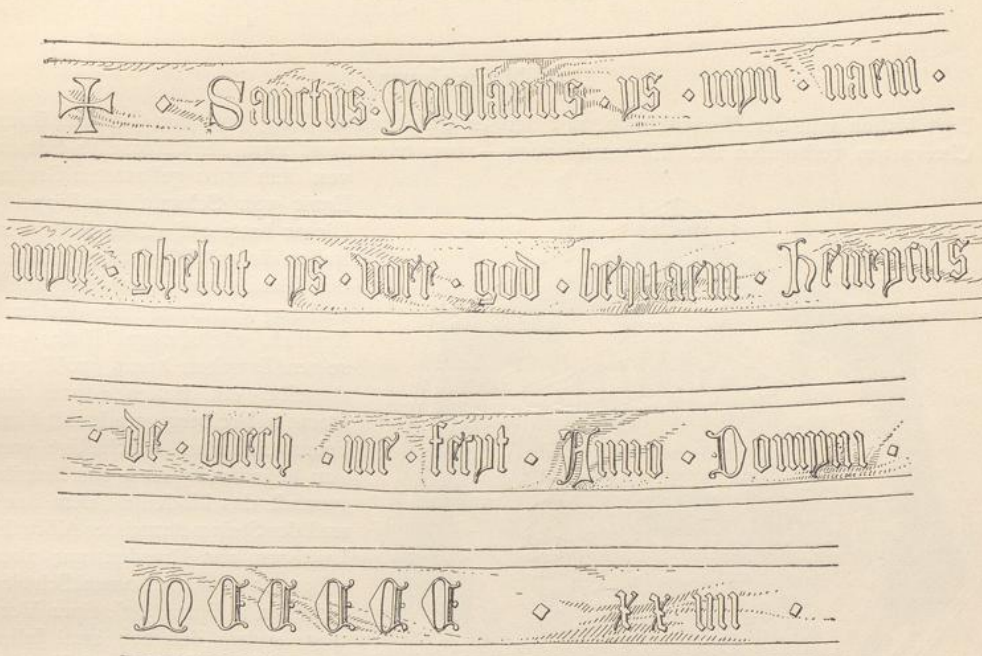 ✠ ⋄ Sanctus · Nycolaus · ys · myn · naem ⋄
myn · ghelut · ys · voer · god · bequaem · Henrycus
⋄ de · borch ⋄ me · fecyt ⋄ Anno ⋄ Domyny ⋄
MCCCCC ⋄ xxiiii ⋄